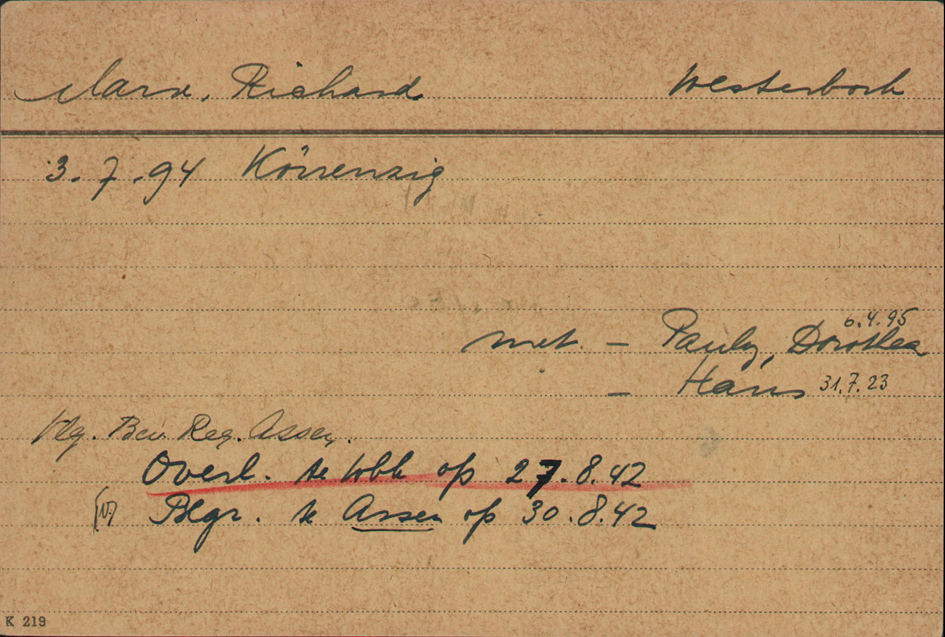 Marx, Richard Westerbork
3.7.94 Körrenzig
6.4.95
met. - Pauly, Dorothea
- Hans 31.7.23
Vlg. Bev. Reg. Assen.
Overl. te Wbk op 27.8.42
Begr. te Assen op 30.8.42
K 219